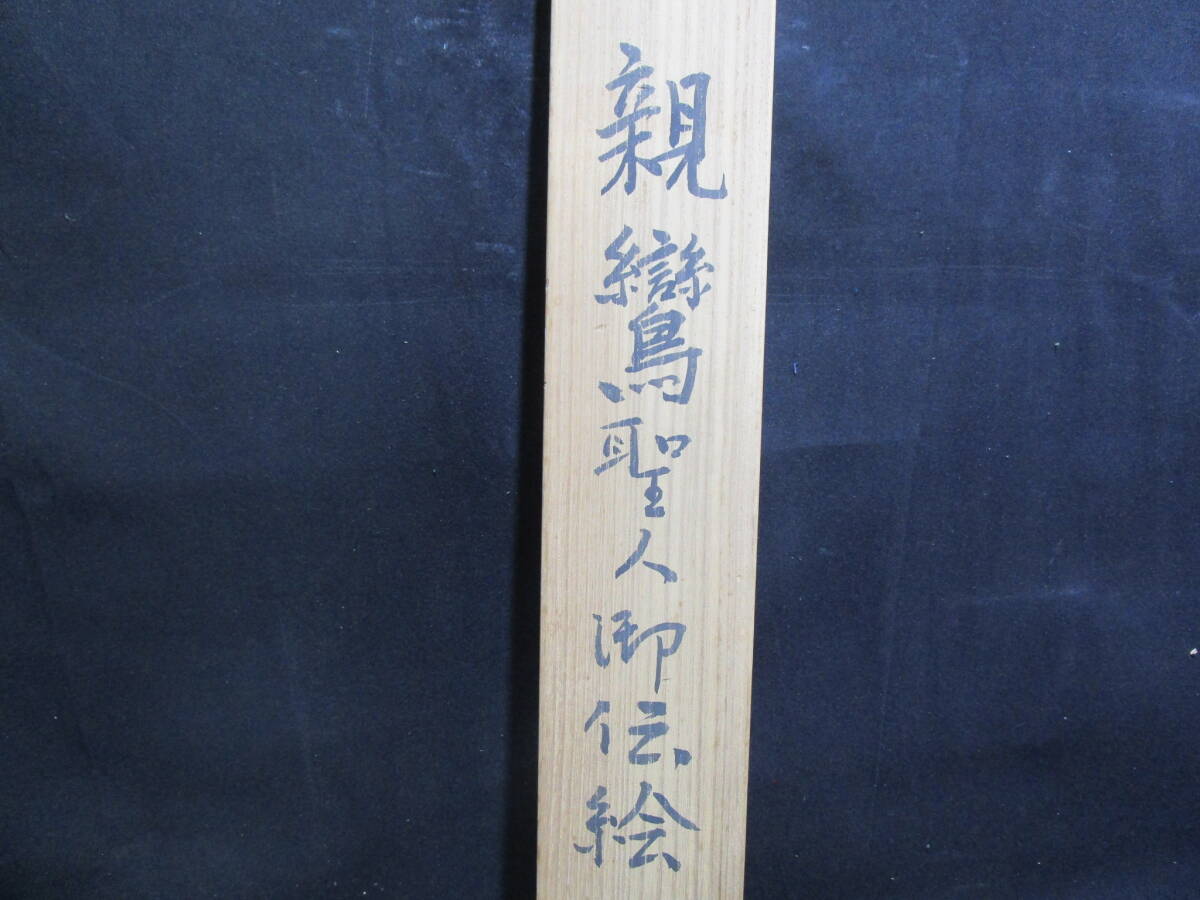 親鸞聖人御伝絵